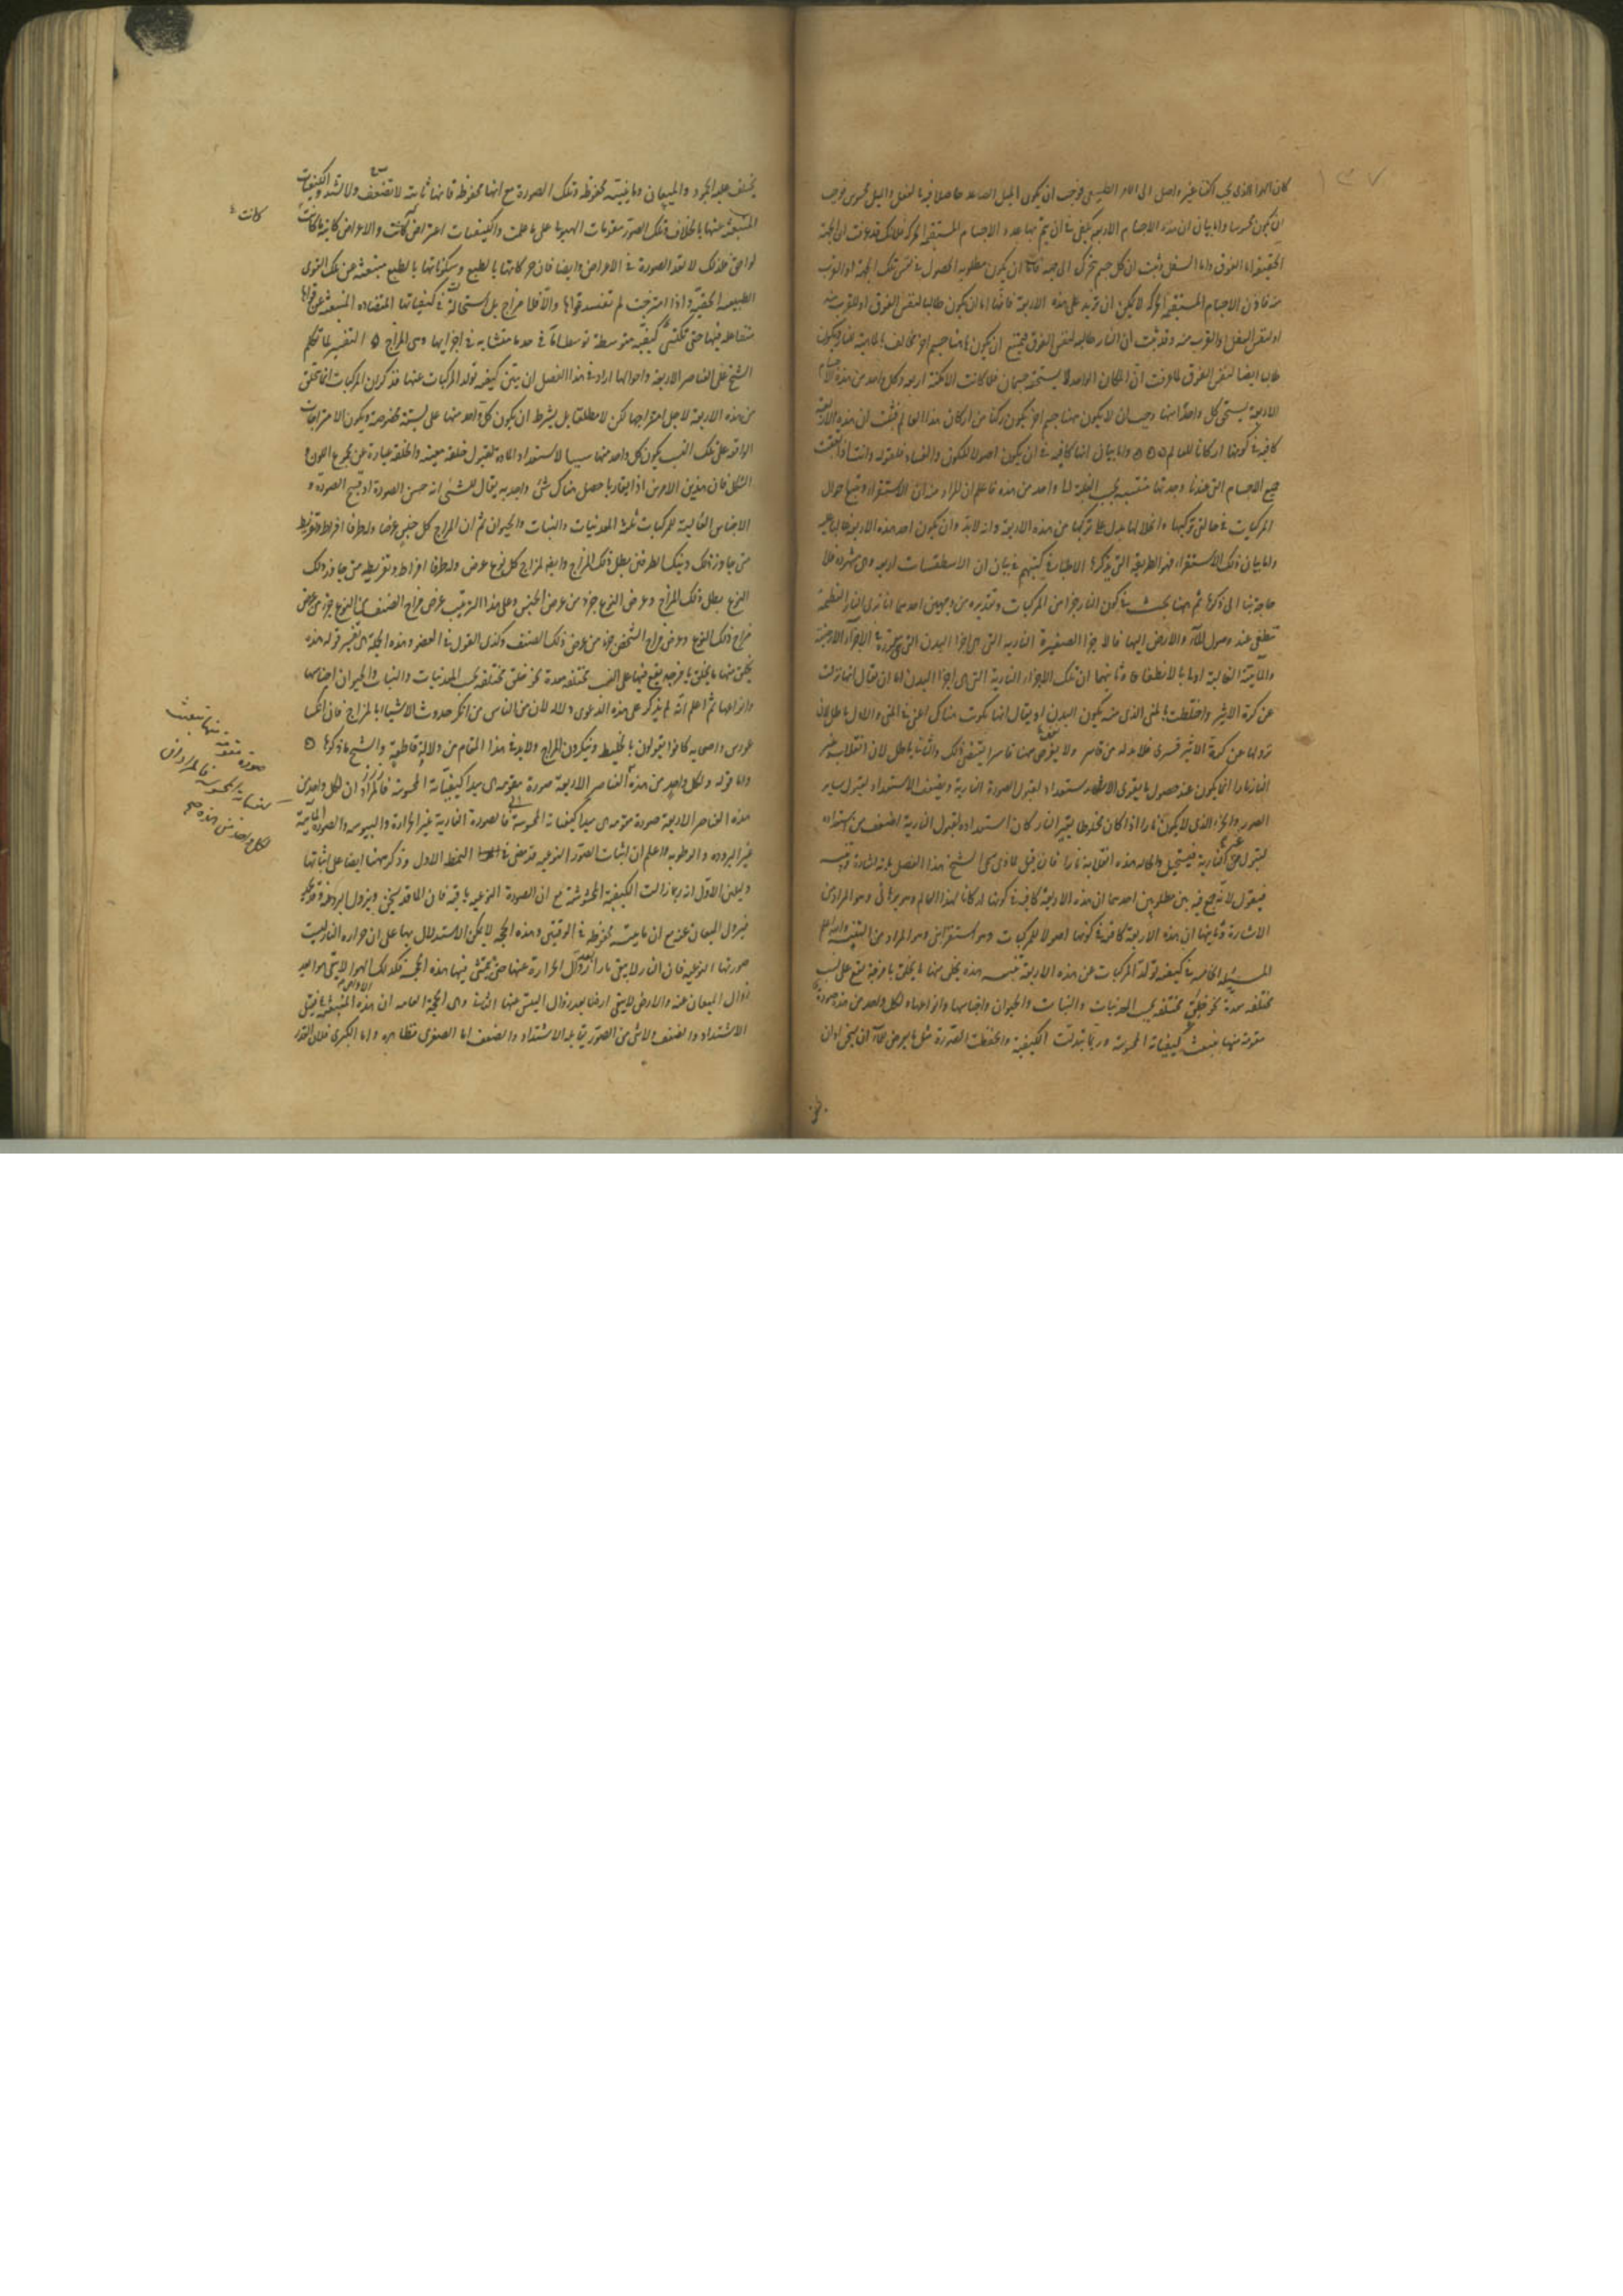 ١٣٧
كان الهوا الذى يجب اكتنا غير واصل الى امر الطبيعى فوجب ان يكون الميل الصاعد حاصلا فيه بالفعل والميل محسوس فوجب
ان يكون محسوسا واما بيان ان هذه الاجسام الاربعة يكفى فى ان يتم بها عدد الاجسام المستقيمة الحركة فلانك قد عرفت ان الجهة
الحقيقية اما الفوق واما السفل وثبت ان كل جسم يتحرك الى جهة فانه ان يكون مطلوبه الحصول فى نفس تلك الجهة او القرب
منه فاذن الاجسام المستقيمة الحركة لا يمكن ان تزيد على هذه الاربعة فانها اما ان يكون طالبا لنفس الفوق او للقرب منه
او لنفس السفل او للقرب منه وقد ثبت ان النار طالبه لنفس الفوق فيمتنع ان يكون هاهنا جسم اخر مخالف بالماهية للنار ويكون
طالبا ايضا لنفس الفوق لما عرفت ان المكان الواحد لا يستحقه جسمان فلما كانت الامكنة اربعة وكل واحد من هذه الاجسام
الاربعة يستحق كل واحد منها وجب ان لا يكون هاهنا جسم اخر يكون ركنا من اركان هذا العالم فثبت ان هذه الاربعة
كافية فى كونها اركانا للعالم واما بيان انها كافية فى ان يكون اصولا للكون والفساد فلقوله وانت اذا تعقبت
جميع الاجسام التى عندنا وجدتها منتسبة بحسب الغلبة الى واحد من هذه فاعلم ان المراد منه ان الاستقراء وتتبع احوال
المركبات فى حالتى تركبها وانحلالها يدل على تركبها من هذه الاربعة وانه لابد وان يكون احد هذه الاربعة غالبا عليه
واما بيان ذلك الاستقراء فهو الطريقة التى يذكرها الاطباء فى كتبهم فى بيان ان الاسطقسات اربعة وهى مشهورة فلا
حاجة بنا الى ذكرها ثم هاهنا بحث فى كون النار جزا من المركبات وتقريره من وجهين احدهما انا نرى النار العظيمة
تنطفى عند وصول الماء والارض اليها فالاجزا الصغيرة النارية التى هى اجزا البدن التى هى مغمورة فى الاجزاء الارضية
والمائية الغالبة اولى بالانطفاء وثانيهما ان تلك الاجزاء النارية التى هى اجزا البدن اما ان يقال انها نزلت
عن كرة الاثير واختلطت بالمنى الذى منه يكون البدن او يقال انها تكونت هناك اعنى فى المنى والاول باطل لان
نزولها عن كرة الاثير قسرى فلابد له من قاسر ولا يعرض هاهنا قاسر يقتضى ذلك والثانى باطل لان انقلاب غير
النار نارا انما يكون عند حصول ما يقوى الاستعداد لقبول الصورة النارية ويضعف الاستعداد لقبول ساير
الصور والجزء الذى لا يكون نارا اذا كان مخلوطا بغير النار كان استعداده لقبول النارية اضعف من استعداده
لقبول غير النارية فيستحيل والحالة هذه انقلابه نارا فان قيل لماذا سمى الشيخ هذا الفصل بانه اشارة وتنبيه
فيقول لانه جمع فيه بين مطلوبين احدهما ان هذه الاربعة كافية فى كونها اركانا لهذا العالم وهو برهانى وهو المراد من
الاشارة وثانيهما ان هذه الاربعة كافية فى كونها اصولا للمركبات وهو استقرائى وهو المراد من التنبيه والله اعلم
المسئلة الخامسة فى كيفية تولد المركبات عن هذه الاربعة تنبيه هذه يخلق منها ما يخلق بامزجة يقع على نسب
مختلفة معدة نحو خلق مختلفة بحسب المعدنيات والنبات والحيوان واجناسها وانواعها ولكل واحد من هذه صورة
مقومة منها ينبعث كيفياته المحسوسة وربما تبدلت الكيفية وانحفظت الصورة مثل ما يعرض للماء ان يسخن او ان
يختلف عليه الجمود والميعان وماهيته محفوظة وتلك الصورة مع انها محفوظة فانها ثابتة لا تضعف ولا تشتد والكيفيات
المنبعثة عنها بالخلاف فتلك الصور مقومات للهيولى على ما علمت والكيفيات اعراض كانت والاعراض كاينة ما كانت
كانت
لواحق فلذلك لا تعد الصورة فى الاعراض وايضا فان حركاتها بالطبع وسكوناتها بالطبع منبعثة عن تلك القوى
الطبيعية الخفية واذا امتزجت لم تفسد قواها والا فلا مزاج بل استحالة فى كيفياتها المتضادة المنبعثة عن قواها
متفاعلة فيها حتى تكتسب كيفية متوسطة توسطا ما فى حد ما متشابه فى اجزايها وهى المزاج التفسير لما تكلم
الشيخ على العناصر الاربعة واحوالها اراد فى هذا الفصل ان يبين كيفية تولد المركبات عنها فذكر ان المركبات انما تخلق
من هذه الاربعة لاجل امتزاجها لكن لا مطلقا بل بشرط ان يكون كل واحد منها على نسبة مخصوصة ويكون الامتزاجات
الواقعة على تلك النسب يكون كل واحد منها سببا لاستعداد المادة لقبول خلقة معينة والخلقة عبارة عن مجموع اللون و
الشكل فان هذين الامرين اذا تقاربا حصل هناك شئ واحد به يقال للشئ انه حسن الصورة او قبيح الصورة و
الاجناس العالية للمركبات ثلثة المعدنيات والنبات والحيوان ثم ان المزاج كل جنس عرضا وله طرفا افراط وتفريط
متى جاوز ذلك وبينك الطرفين بطل ذلك المزاج وايضا لمزاج كل نوع عرض وله طرفا افراط وتفريط متى جاوز ذلك
النوع بطل ذلك المزاج وعرض النوع جزء من عرض الجنس وعلى هذا الترتيب عرض مزاج الصنف من النوع جزء من عرض
مزاج ذلك النوع وعرض مزاج الشخص جزء من عرض ذلك الصنف وكذى القول فى العضو وهذه الجملة هى تفسير قوله هذه
يخلق منها ما يخلق بامزجة يقع فيها على نسب مختلفة معدة نحو خلق مختلفة بحسب المعدنيات والنبات والحيوان اجناسها
وانواعها ثم اعلم انه لم يذكر على هذه الدعوى دلالة لان من الناس من انكر حدوث الاشياء بالمزاج فان انكسا
غورس واصحابه كانوا يقولون بالخليط وينكرون المزاج ولابد فى هذا المقام من دلالة قاطعة والشيخ ما ذكرها
واما قوله ولكل واحد من هذه العناصر الاربعة صورة مقومة هى مبدا كيفياته المحسوسة فالمراد ان لكل واحد من
هذه العناصر الاربعة صورة مقومة هى مبدا كيفياته المحسوسة فالصورة النارية غير الحرارة واليبوسة والصورة المائية
غير البرودة والرطوبة واعلم ان اثبات الصور النوعية قد مضى فى النمط الاول وذكر هاهنا ايضا على اثباتها
دليلين الاول انه ربما زالت الكيفية المحسوسة مع ان الصورة النوعية باقية فان الماء قد يسخن ويزول البرد عنه وقد يجمد
فيزول الميعان عنه مع ان ماهيته محفوظة فى الوقتين وهذه الحجة لا يمكن الاستدلال بها على ان حرارة النار ليست
صورتها النوعية فان النار لا يبقى نارا بعد زوال الحرارة عنها حتى يتمشى فيها هذه الحجة فكذلك الهوا لا يبقى هوا بعد
زوال الميعان عنه والارض لا يبقى ارضا بعد زوال اليبس عنها الثانى وهى الحجة العامة ان هذه المنبعثة يقبل
الاشتداد والضعف ولا شئ من الصور يقابل الاشتداد والضعف اما الصغرى فظاهرة واما الكبرى فلان القدر
صورة مقومة منها تنبعث
كيفياته المحسوسة فالمراد ان
لكل واحد من هذه صح